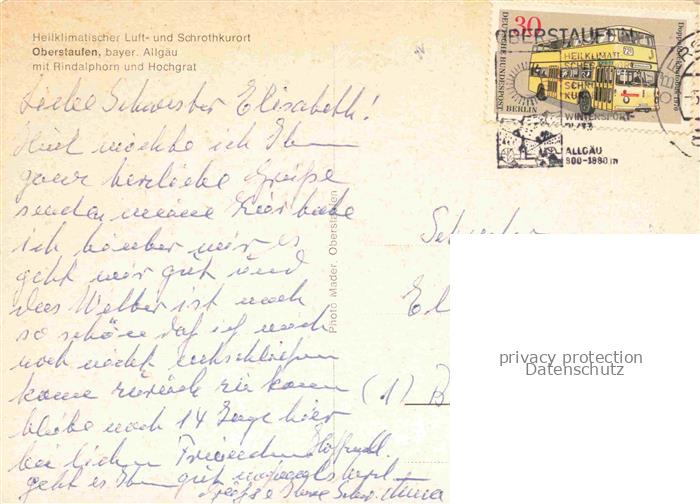 Heilklimatischer Luft- und Schrothkurort
Oberstaufen, bayer. Allgäu
mit Rindalphorn und Hochgrat
Liebe Schwester Elisabeth!
möchte ich Ihnen
ganz herzliche Grüße
senden meine Kur habe
ich hinter mir es
geht mir gut und
das Wetter ist noch
so schön daß ich mich
noch nicht entschließen
kann zurück zu kommen
bleibe noch 14 Tage hier
bei lieben Freunden Hoffentl.
geht es Ihnen gut
Grüße Ihre Schw. Anna
Photo Mader, Oberstaufen
Schwester
El
(1) B
30
DEUTSCHE BUNDESPOST
BERLIN
OBERSTAUFEN
HEILKLIMAT
SCHROTH
KUR
WINTERSPORT
ALLGÄU
800-1880 m
privacy protection
Datenschutz